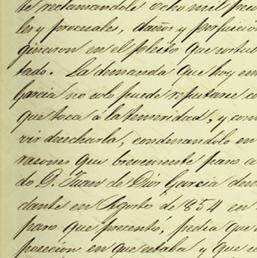 de reclamandole ocho mil
les y procesales, daños y perjuicios
ginaron en el pleito que
tado. La demanda que hoy
Garcia no solo puede reputarse
que toca á la temeridad, y
vir desecharla, condenandolo en
razones que brevemente paso a
do D. Juan de Dios Garcia
dante en Agosto de 854 en
paro que presentó, pedia que
posecion en que estaba y que